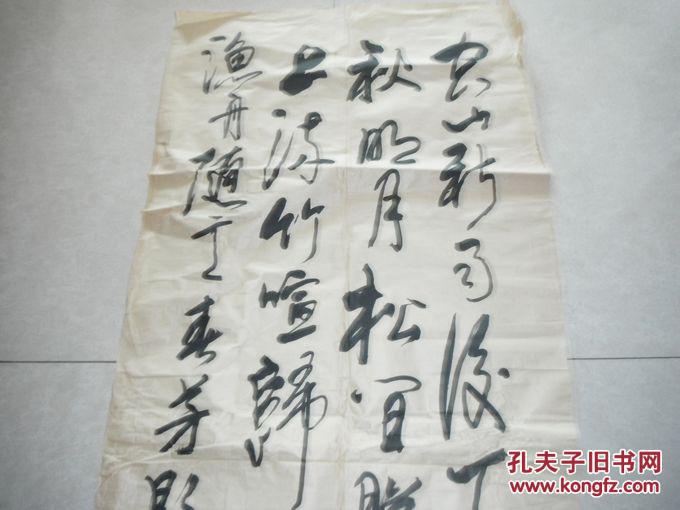 空山新雨後
秋明月松间
上流竹喧歸
漁舟隨意春芳
孔夫子旧书网
www.kongfz.com